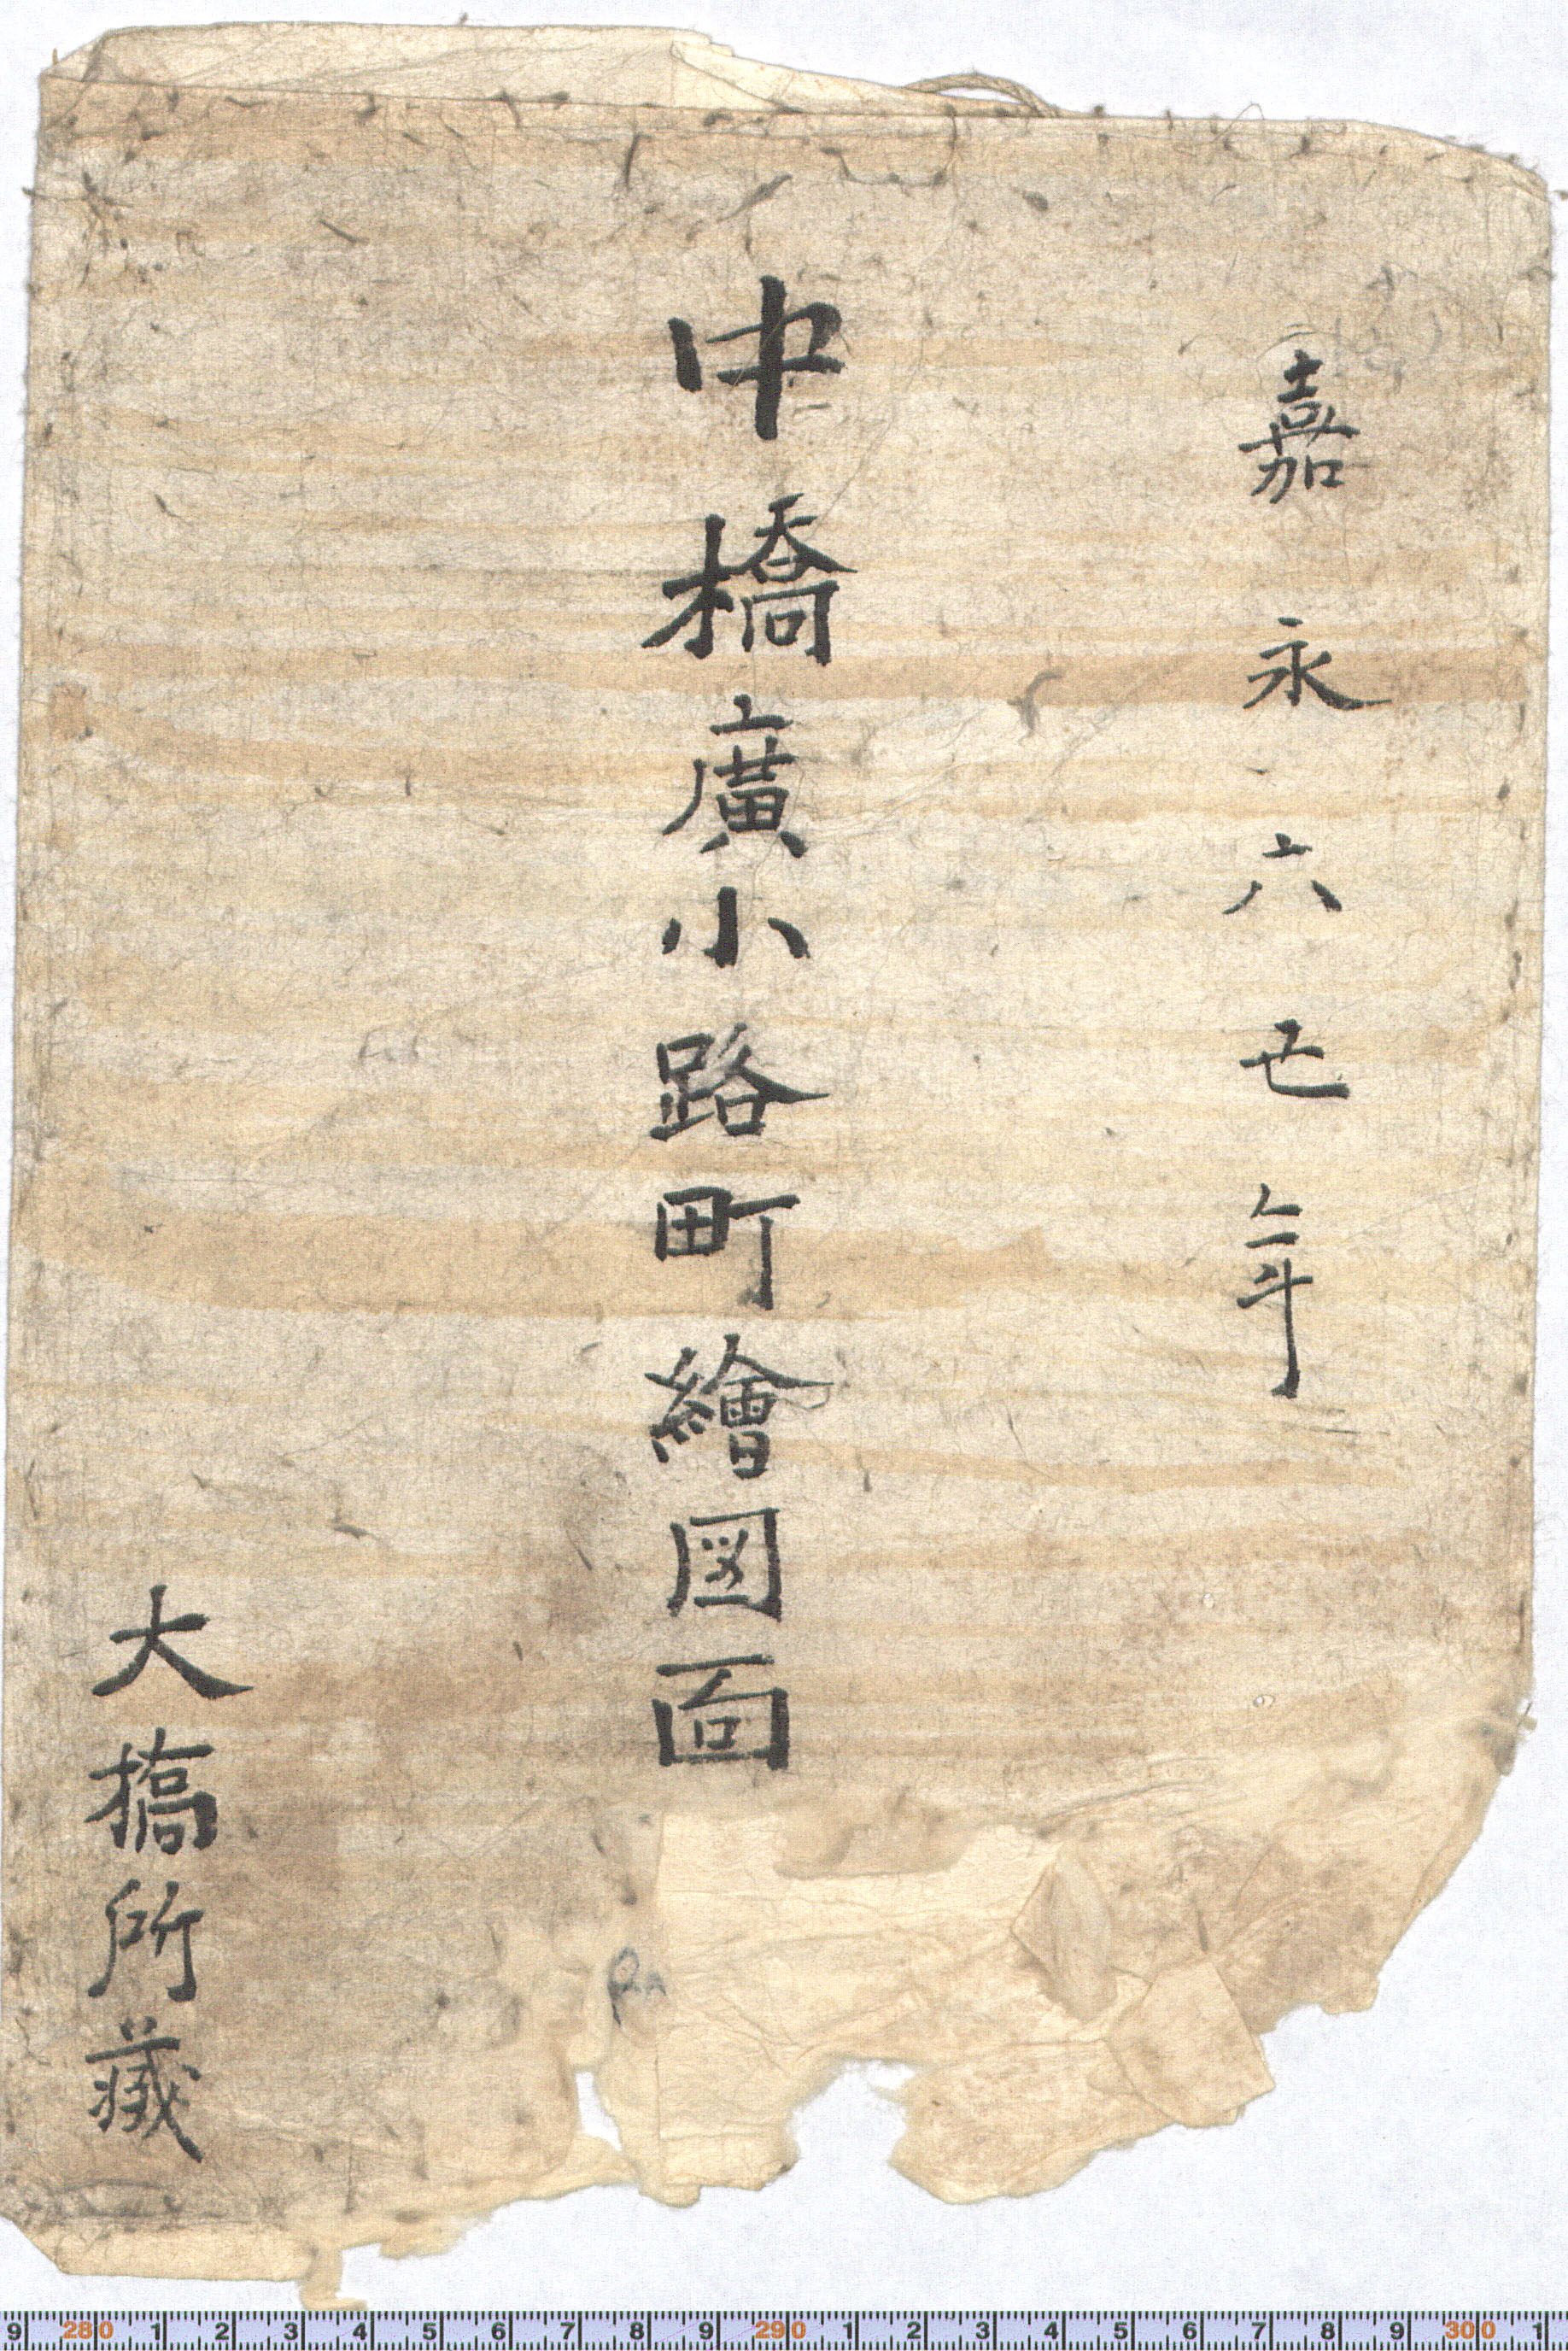 嘉永六丑年
中橋廣小路町繪図面
大橋所蔵
9 280 1 2 3 4 5 6 7 8 9 290 1 2 3 4 5 6 7 8 9 300 1